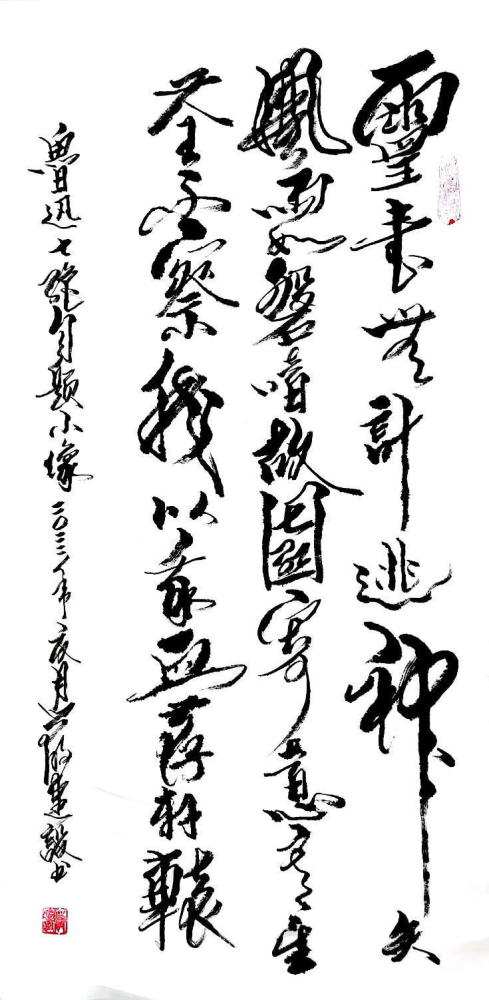 靈臺無計逃神矢
風雨如磐暗故園寄意寒星
荃不察我以我血薦軒轅
魯迅七絕自題小像 年夏月 書